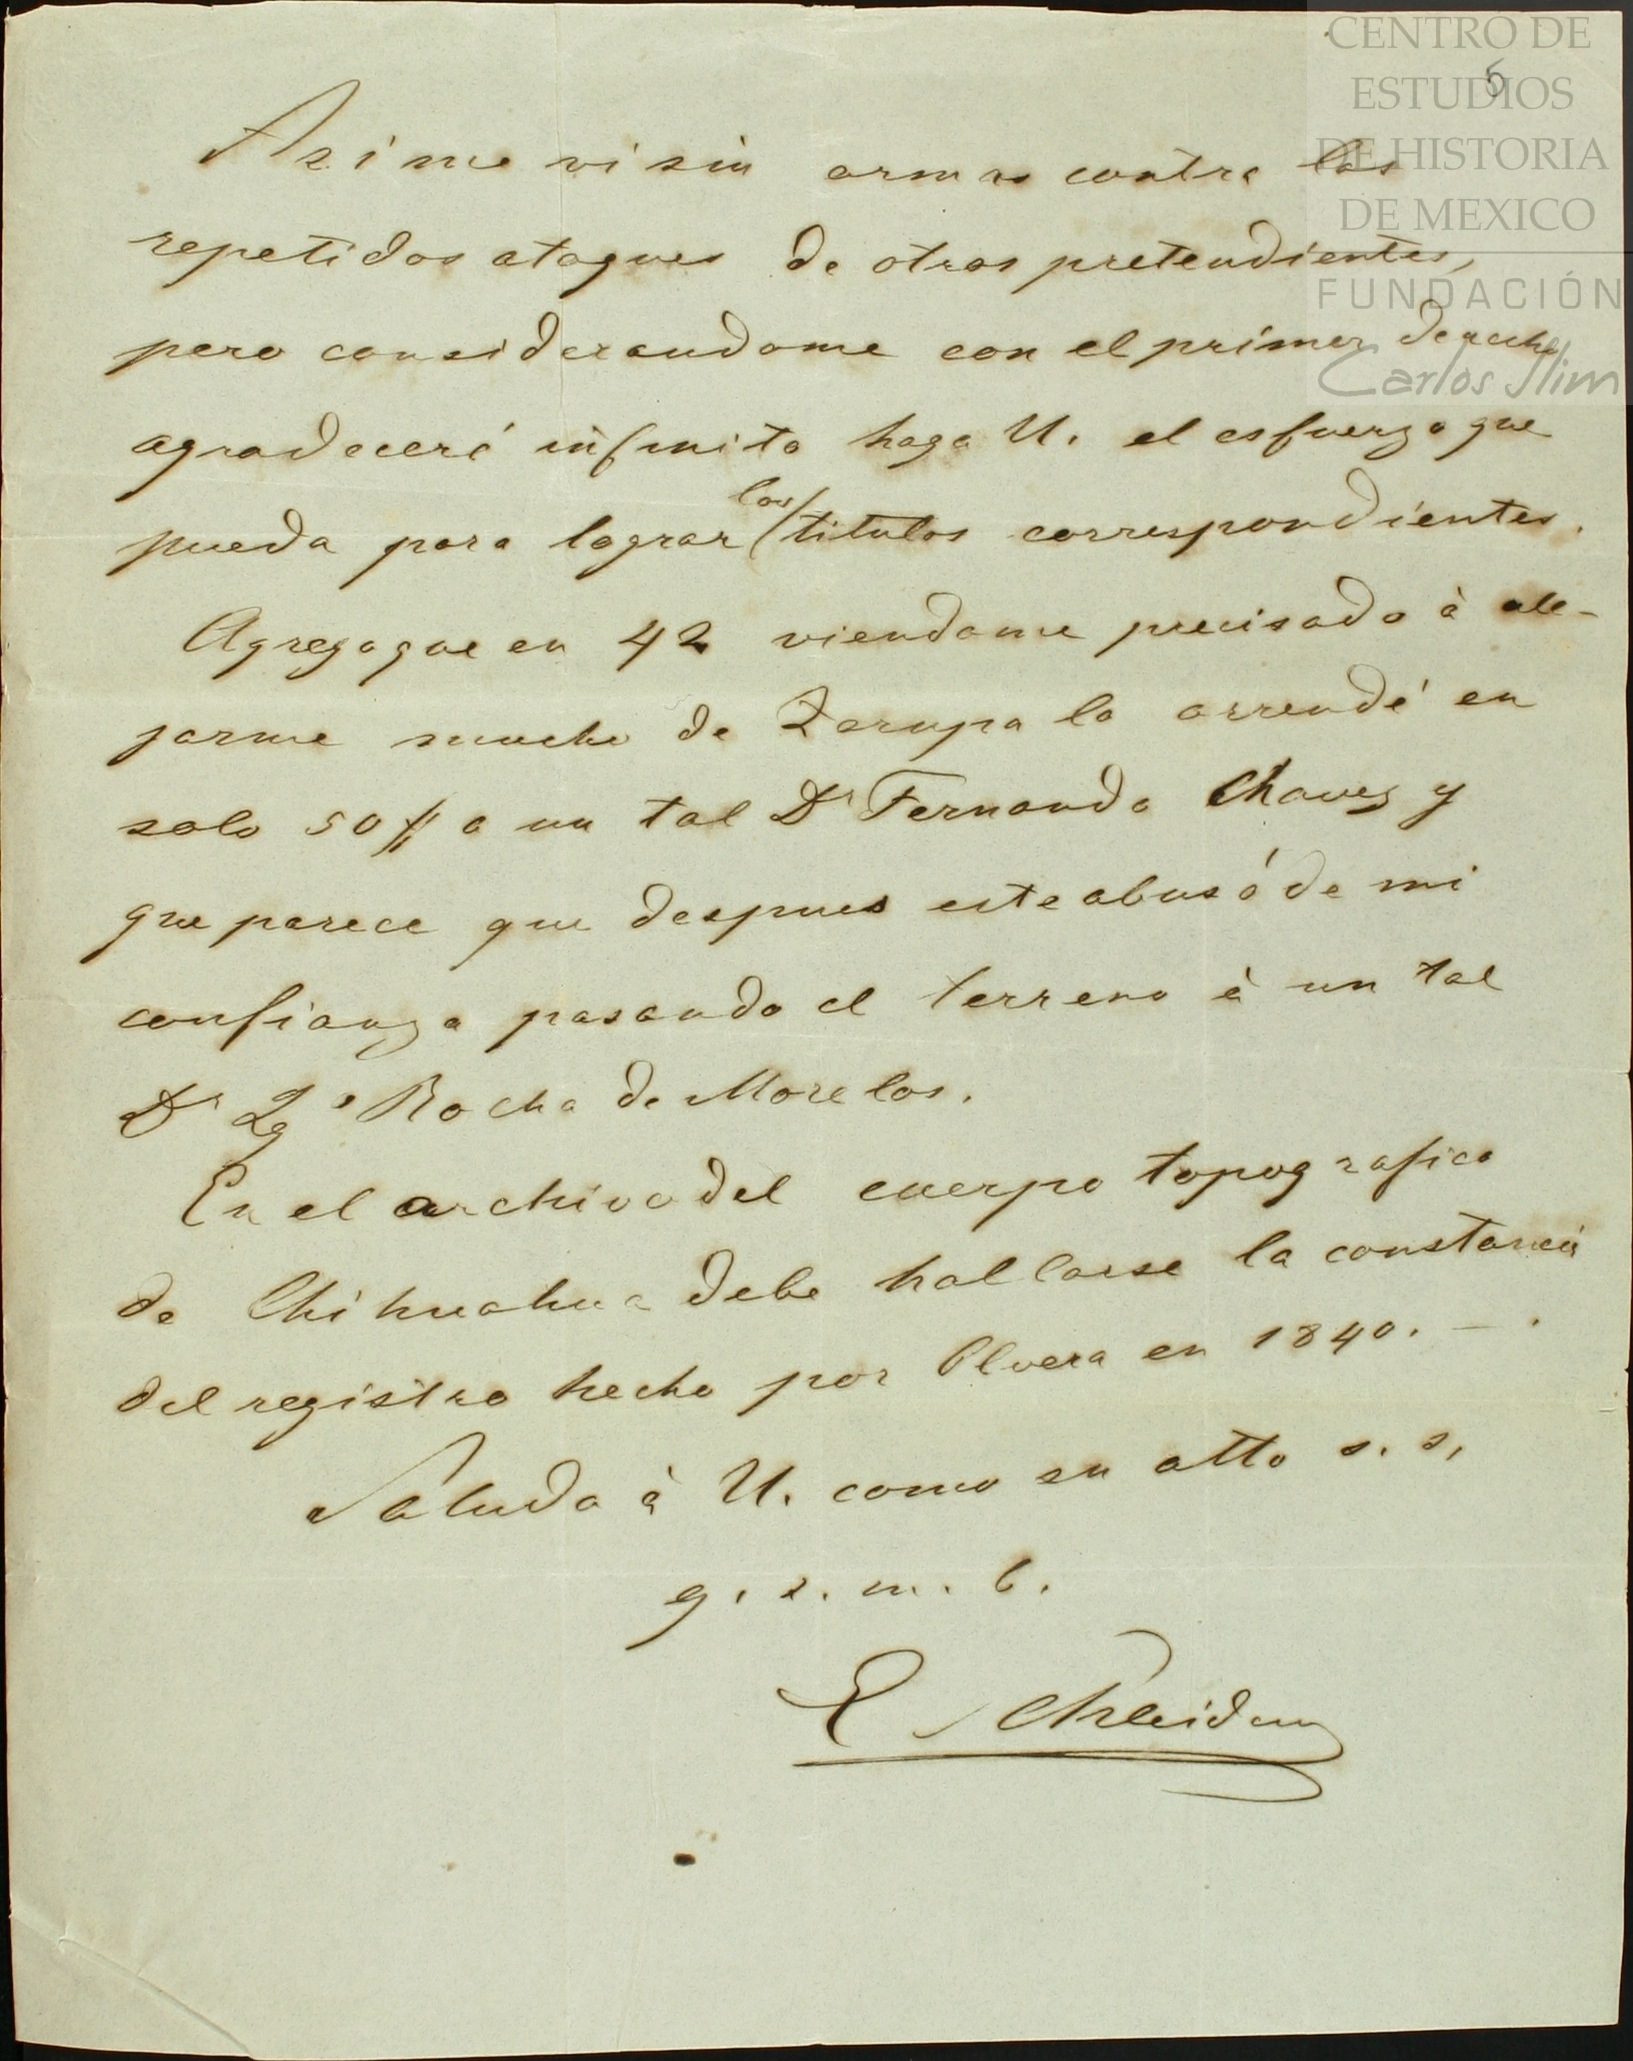 CENTRO DE
ESTUDIOS
DE HISTORIA
DE MEXICO
FUNDACIÓN
Carlos Slim
5
Asi me vi sin armas contra los
repetidos ataques de otros pretendientes,
pero considerandome con el primer derecho
agradeceré infinito haga U. el esfuerzo que
pueda para lograr los titulos correspondientes.
Agrego que en 42 viendome precisado à ale-
jarme mucho de Zarupa lo arrendé en
solo 50 $ a un tal Dn Fernando Chavez y
que parece que despues este abusó de mi
confianza pasando el terreno à un tal
Dn Rocha de Morelos.
En el archivo del cuerpo topografico
de Chihuahua debe hallarse la constancia
del registro hecho por Olvera en 1840. —.
Saluda à U. como su atto s. s,
q. s. m. b.
E